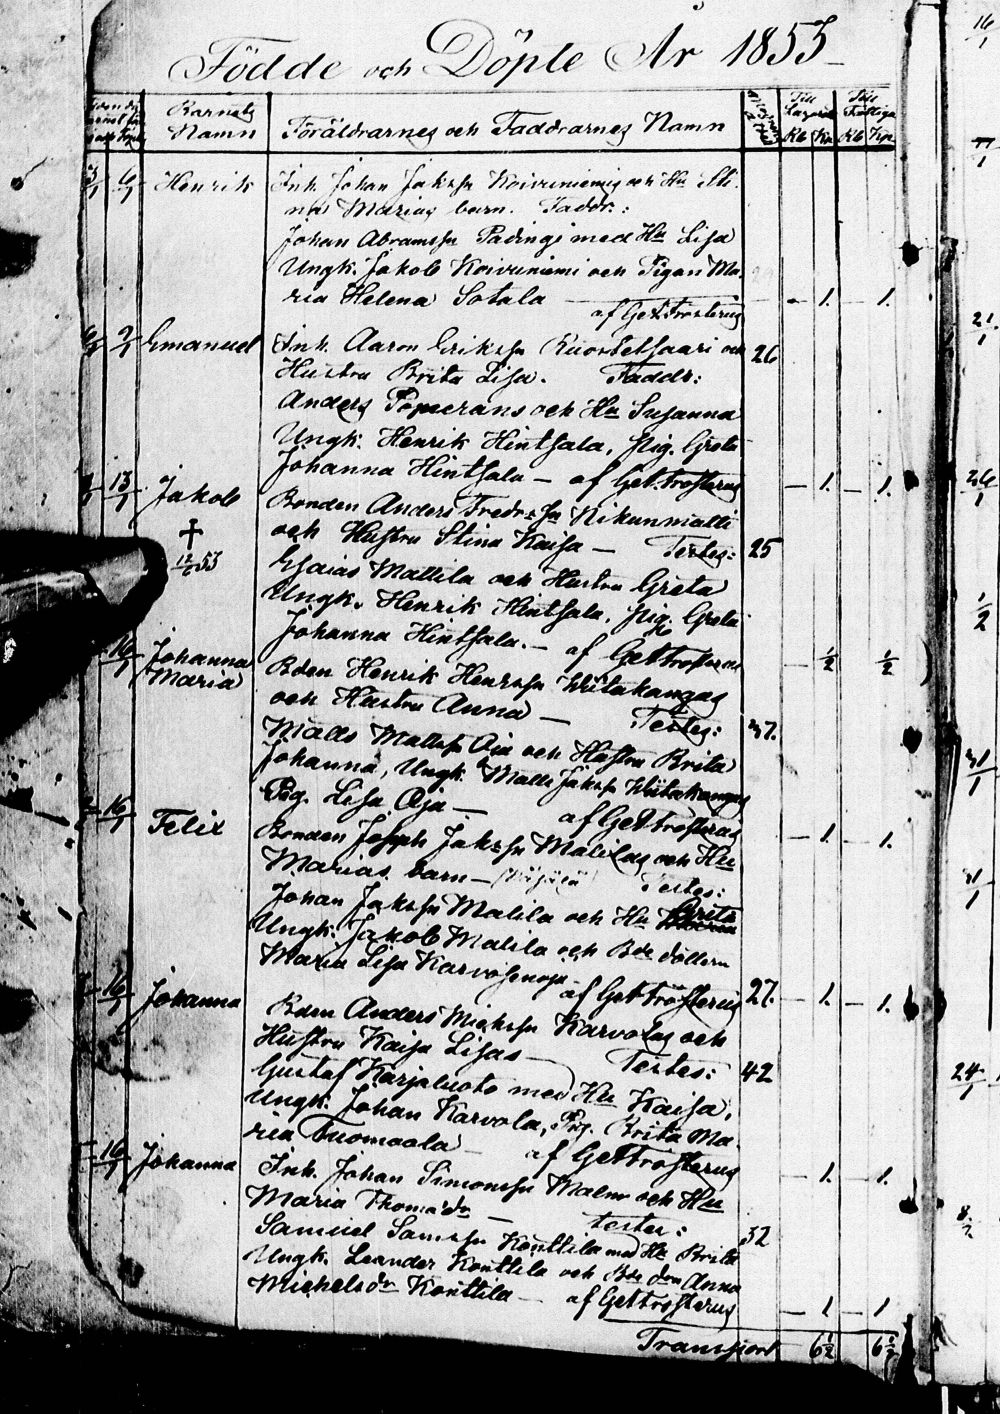 Födde och Döpte År 1853
Barnets Namn
Föräldrarnes och Faddrarnes Namn
Till Lazaret
Till Fattiga
Rb Kp Rb Kp
6/1 Henrik Inh. Johan Jaksn Koivuniemis och Hu Sti-
nas Marias barn. Faddr.:
Johan Abramsn Padingi med Hu Lisa
Ungk. Jakob Koivuniemi och Pigan Ma-
ria Helena Sotala
af Get. Frosterus 1. 1.
9/1 Emanuel Inh. Aaron Eriksn Ruotsetsaari och 26
Hustru Brita Lisa. Faddr:
Anders Pomerans och Hu Susanna
Ungk. Henrik Hintsala, Pig. Greta
Johanna Hintsala — af Get. Frosterus 1. 1.
13/1 Jakob Bonden Anders Fredr:sn Nikunmatti
och Hustru Stina Kaisa — Testes: 25
† 12/6 53
Esaias Mattila och Hustru Greta
Ungk. Henrik Hintsala, Pig. Greta
Johanna Hintsala. — af Get Frosterus ½ ½
16/1 Johanna Maria Bden Henrik Henrsn Wiitakangas
och Hustru Anna — Testes: 37.
Matts Mattsn Oja och Hustru Brita
Johanna, Ungk. Matts Jaksn Wiitakangas
Pig. Lisa Oja — af Get Frosterus 1. 1.
16/1 Felix Bonden Joseph Jaksn Malilas och Hu
Marias barn — Testes:
Johan Jaksn Malila och Hu Brita
Ungk. Jakob Malila och Bde dottern
Maria Lisa Karvosenoja
af Get Frosterus 27. 1. 1.
16/1 Johanna Bden Anders Micksn Karvolas och
Hustru Kaisa Lisas — Testes: 42
Gustaf Karjaluoto med Hu Kaisa,
Ungk. Johan Karvola, Pig. Brita Ma-
ria Tuomaala — af Get Frosterus 1. 1.
16/1 Johanna Inh. Johan Simonsn Malmo och Hu
Maria Thomædr — testes: 32
Samuel Samsn Konttila med Hu Brita
Ungk. Leander Konttila och Bde dren Anna
Michelsdr Konttila — af Get Frosterus 1 1
Transport 6½ 6½